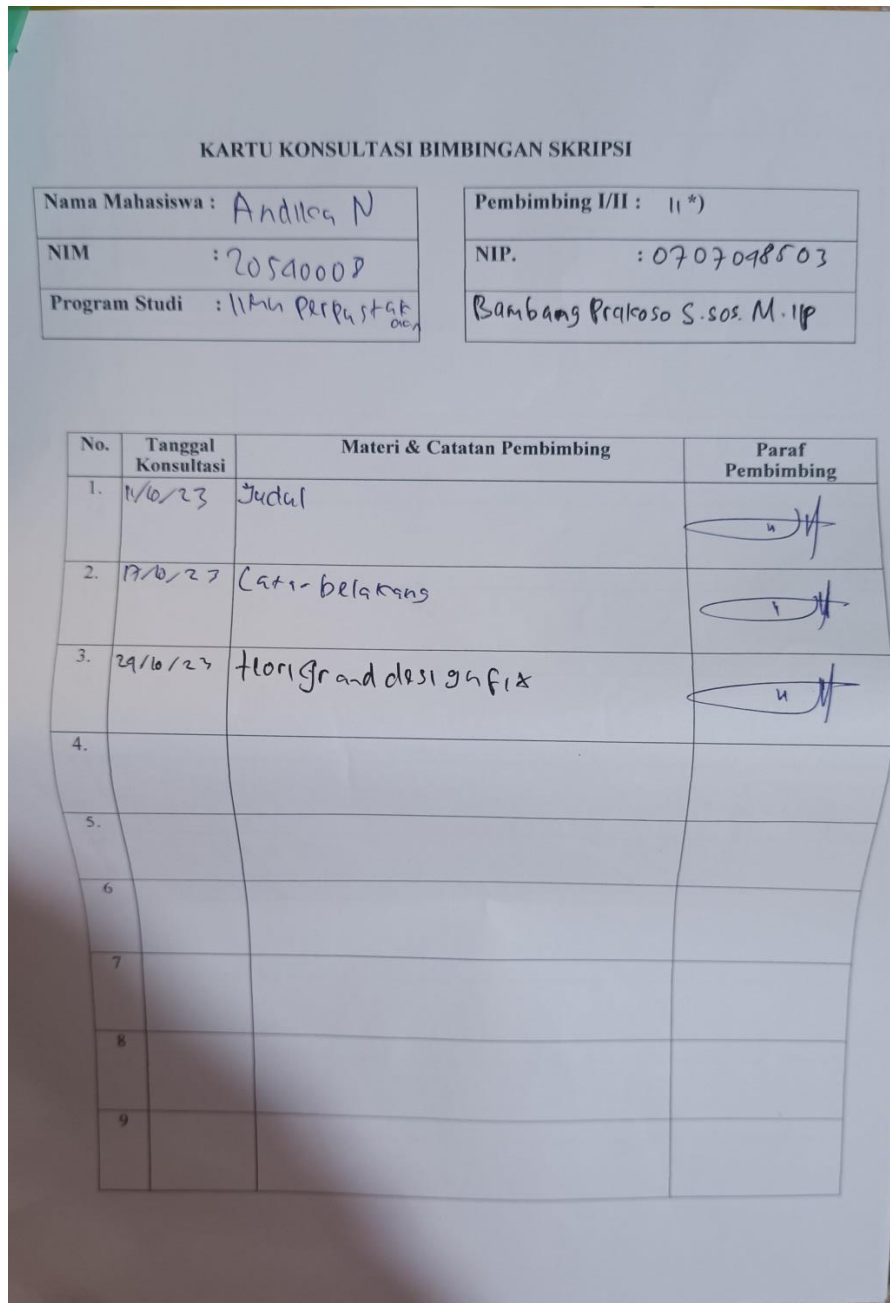 KARTU KONSULTASI BIMBINGAN SKRIPSI
Nama Mahasiswa : N
NIM :
Program Studi : Ilmu Perpustakaan
Pembimbing I/II : II *)
NIP. : 0707098503
Bambang Prakoso S.sos. M.IP
No. Tanggal Konsultasi Materi & Catatan Pembimbing Paraf Pembimbing
1. 11/10/23 Judul
2. 17/10/23 Latar belakang
3. /10/23 teori grand design fix
4.
5.
6
7
8
9